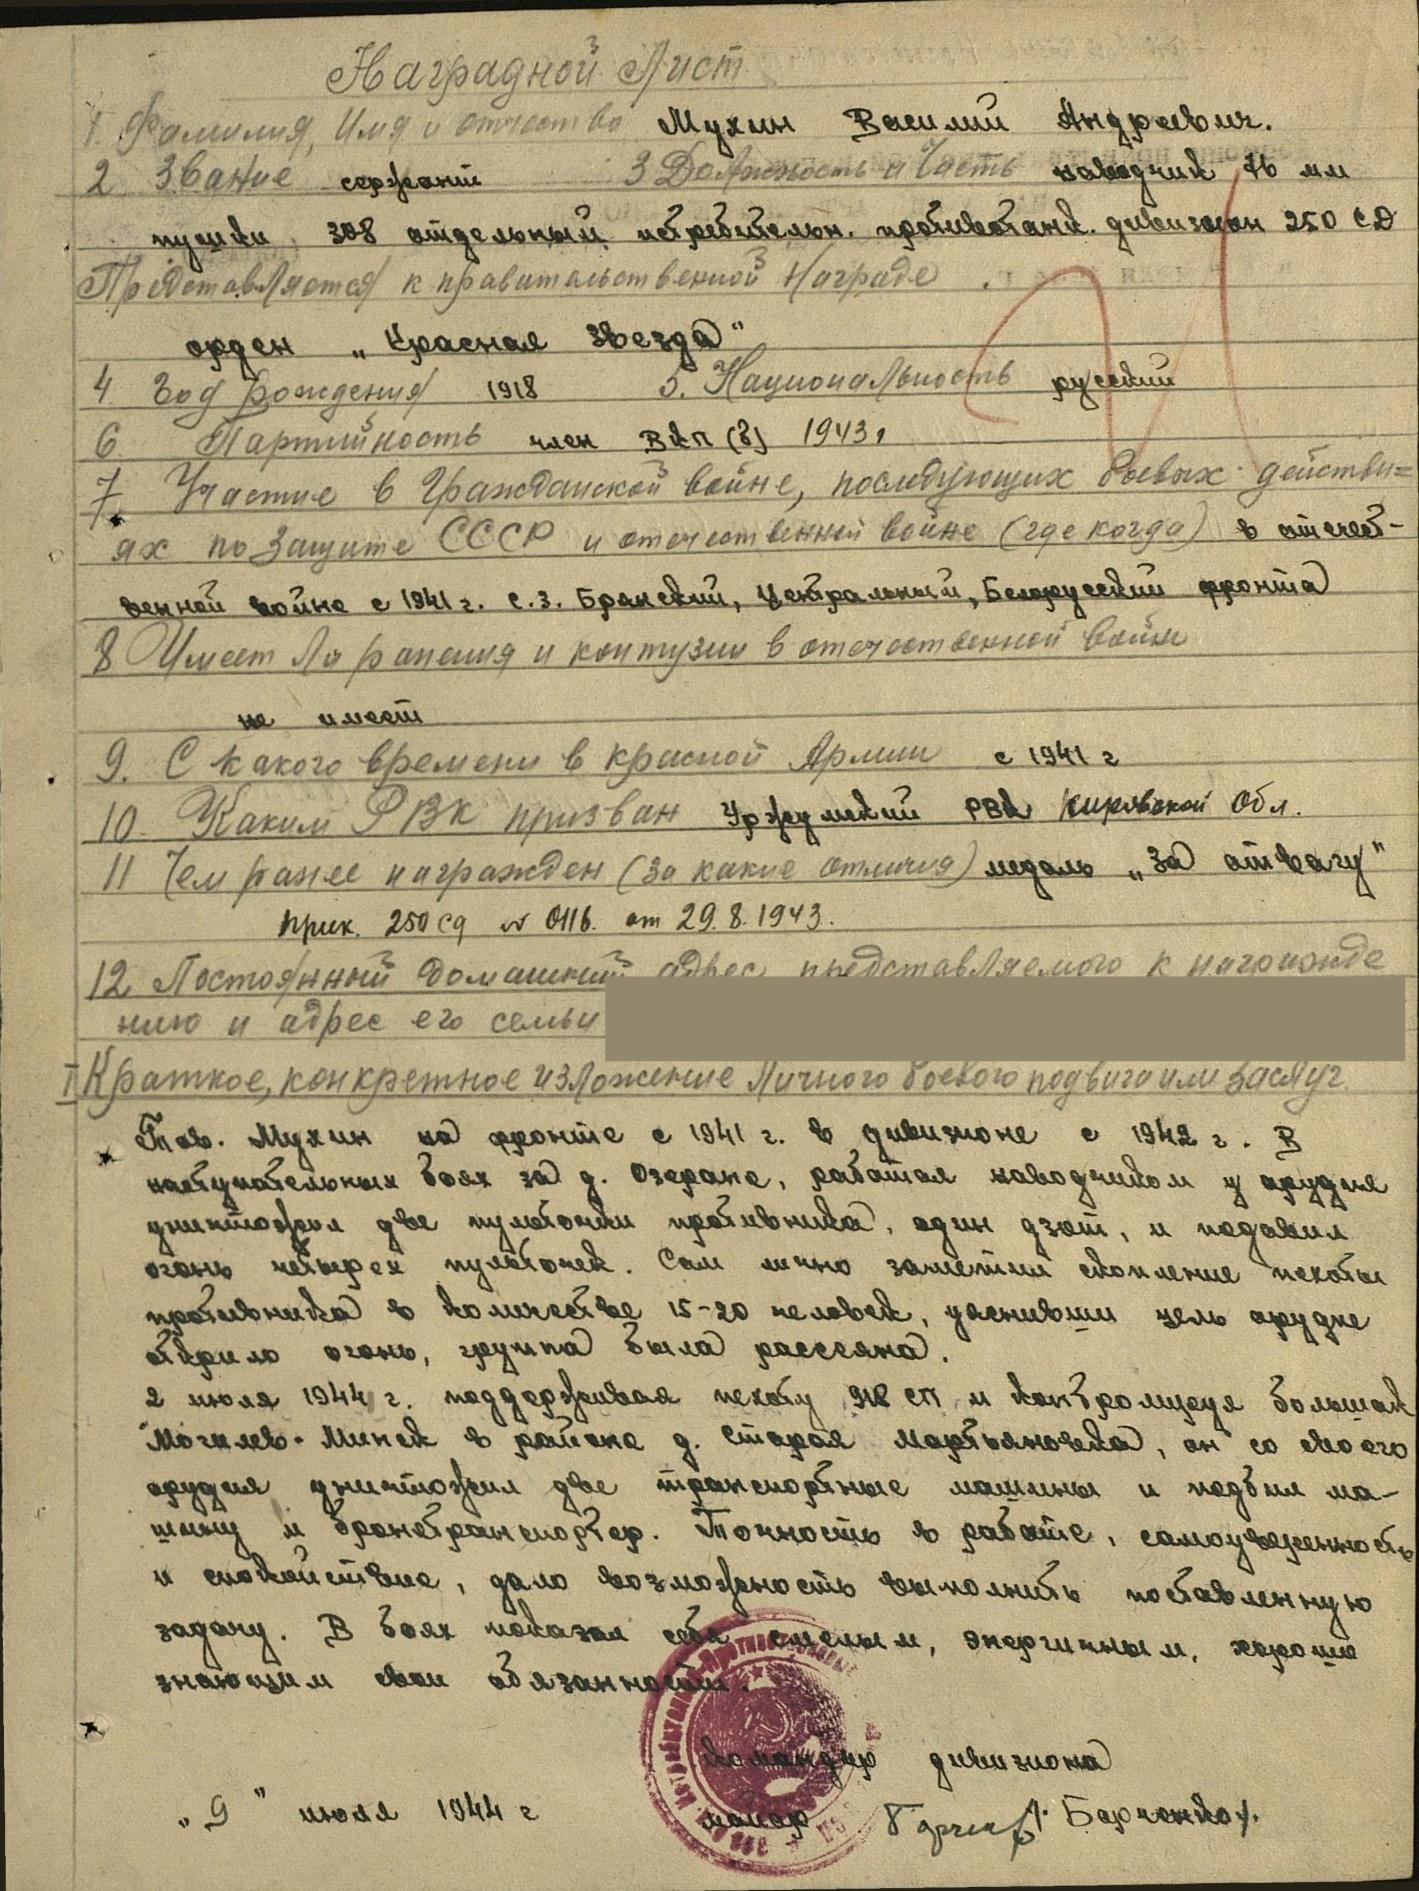 Наградной Лист
1 Фамилия, Имя и отчество Мухин Василий Андреевич.
2 Звание сержант 3 Должность и Часть наводчик 76 мм
пушки, 308 отдельный, истребительн. противотанк. дивизион 250 СД
Представляется к правительственной Награде.
орден „Красная Звезда"
4 Год рождения 1918 5. Национальность русский
6. Партийность член ВКП(б) 1943г
7 Участие в Гражданской войне, последующих боевых действи=
ях по защите СССР и отечественной войне (где когда) в отечест-
венной войне с 1941 г. С.З. Брянский, Центральный, Белорусский фронта
8 Имеет ли ранения и контузии в отечественной войне
не имеет
9. С какого времени в красной Армии с 1941 г
10. Каким РВК призван Уржумский РВК Кировской Обл.
11 Чем ранее награжден (за какие отличия) медаль „За отвагу"
прик. 250 сд № 0116. от 29.8.1943.
12 Постоянный домашний адрес представляемого к награжде
нию и адрес его семьи
I Краткое, конкретное изложение личного боевого подвига или заслуг.
Тов. Мухин на фронте с 1941 г. в дивизионе с 1942 г. В
наступательных боях за д. Озеране, работая наводчиком у орудия
уничтожил две пульточки противника, один дзот, и подавил
огонь четырех пульточек. Сам лично заметил скопление пехоты
противника в количестве 15-20 человек, уяснивши цель орудие
открыло огонь, группа была рассеяна.
2 июля 1944 г. поддерживая пехоту 918 СП и контролируя большак
Могилев-Минск в районе д. Старая Мартьяновка, он со своего
орудия уничтожил две транспортные машины и подбил ма-
шину и бронетранспортер. Точность в работе, самоуверенность
и спокойствие, дало возможность выполнить поставленную
задачу. В боях показал себя смелым, энергичным, хорошо
знающим свои обязанности.
Командир дивизиона
„9" июля 1944 г майор /. Барченко/.